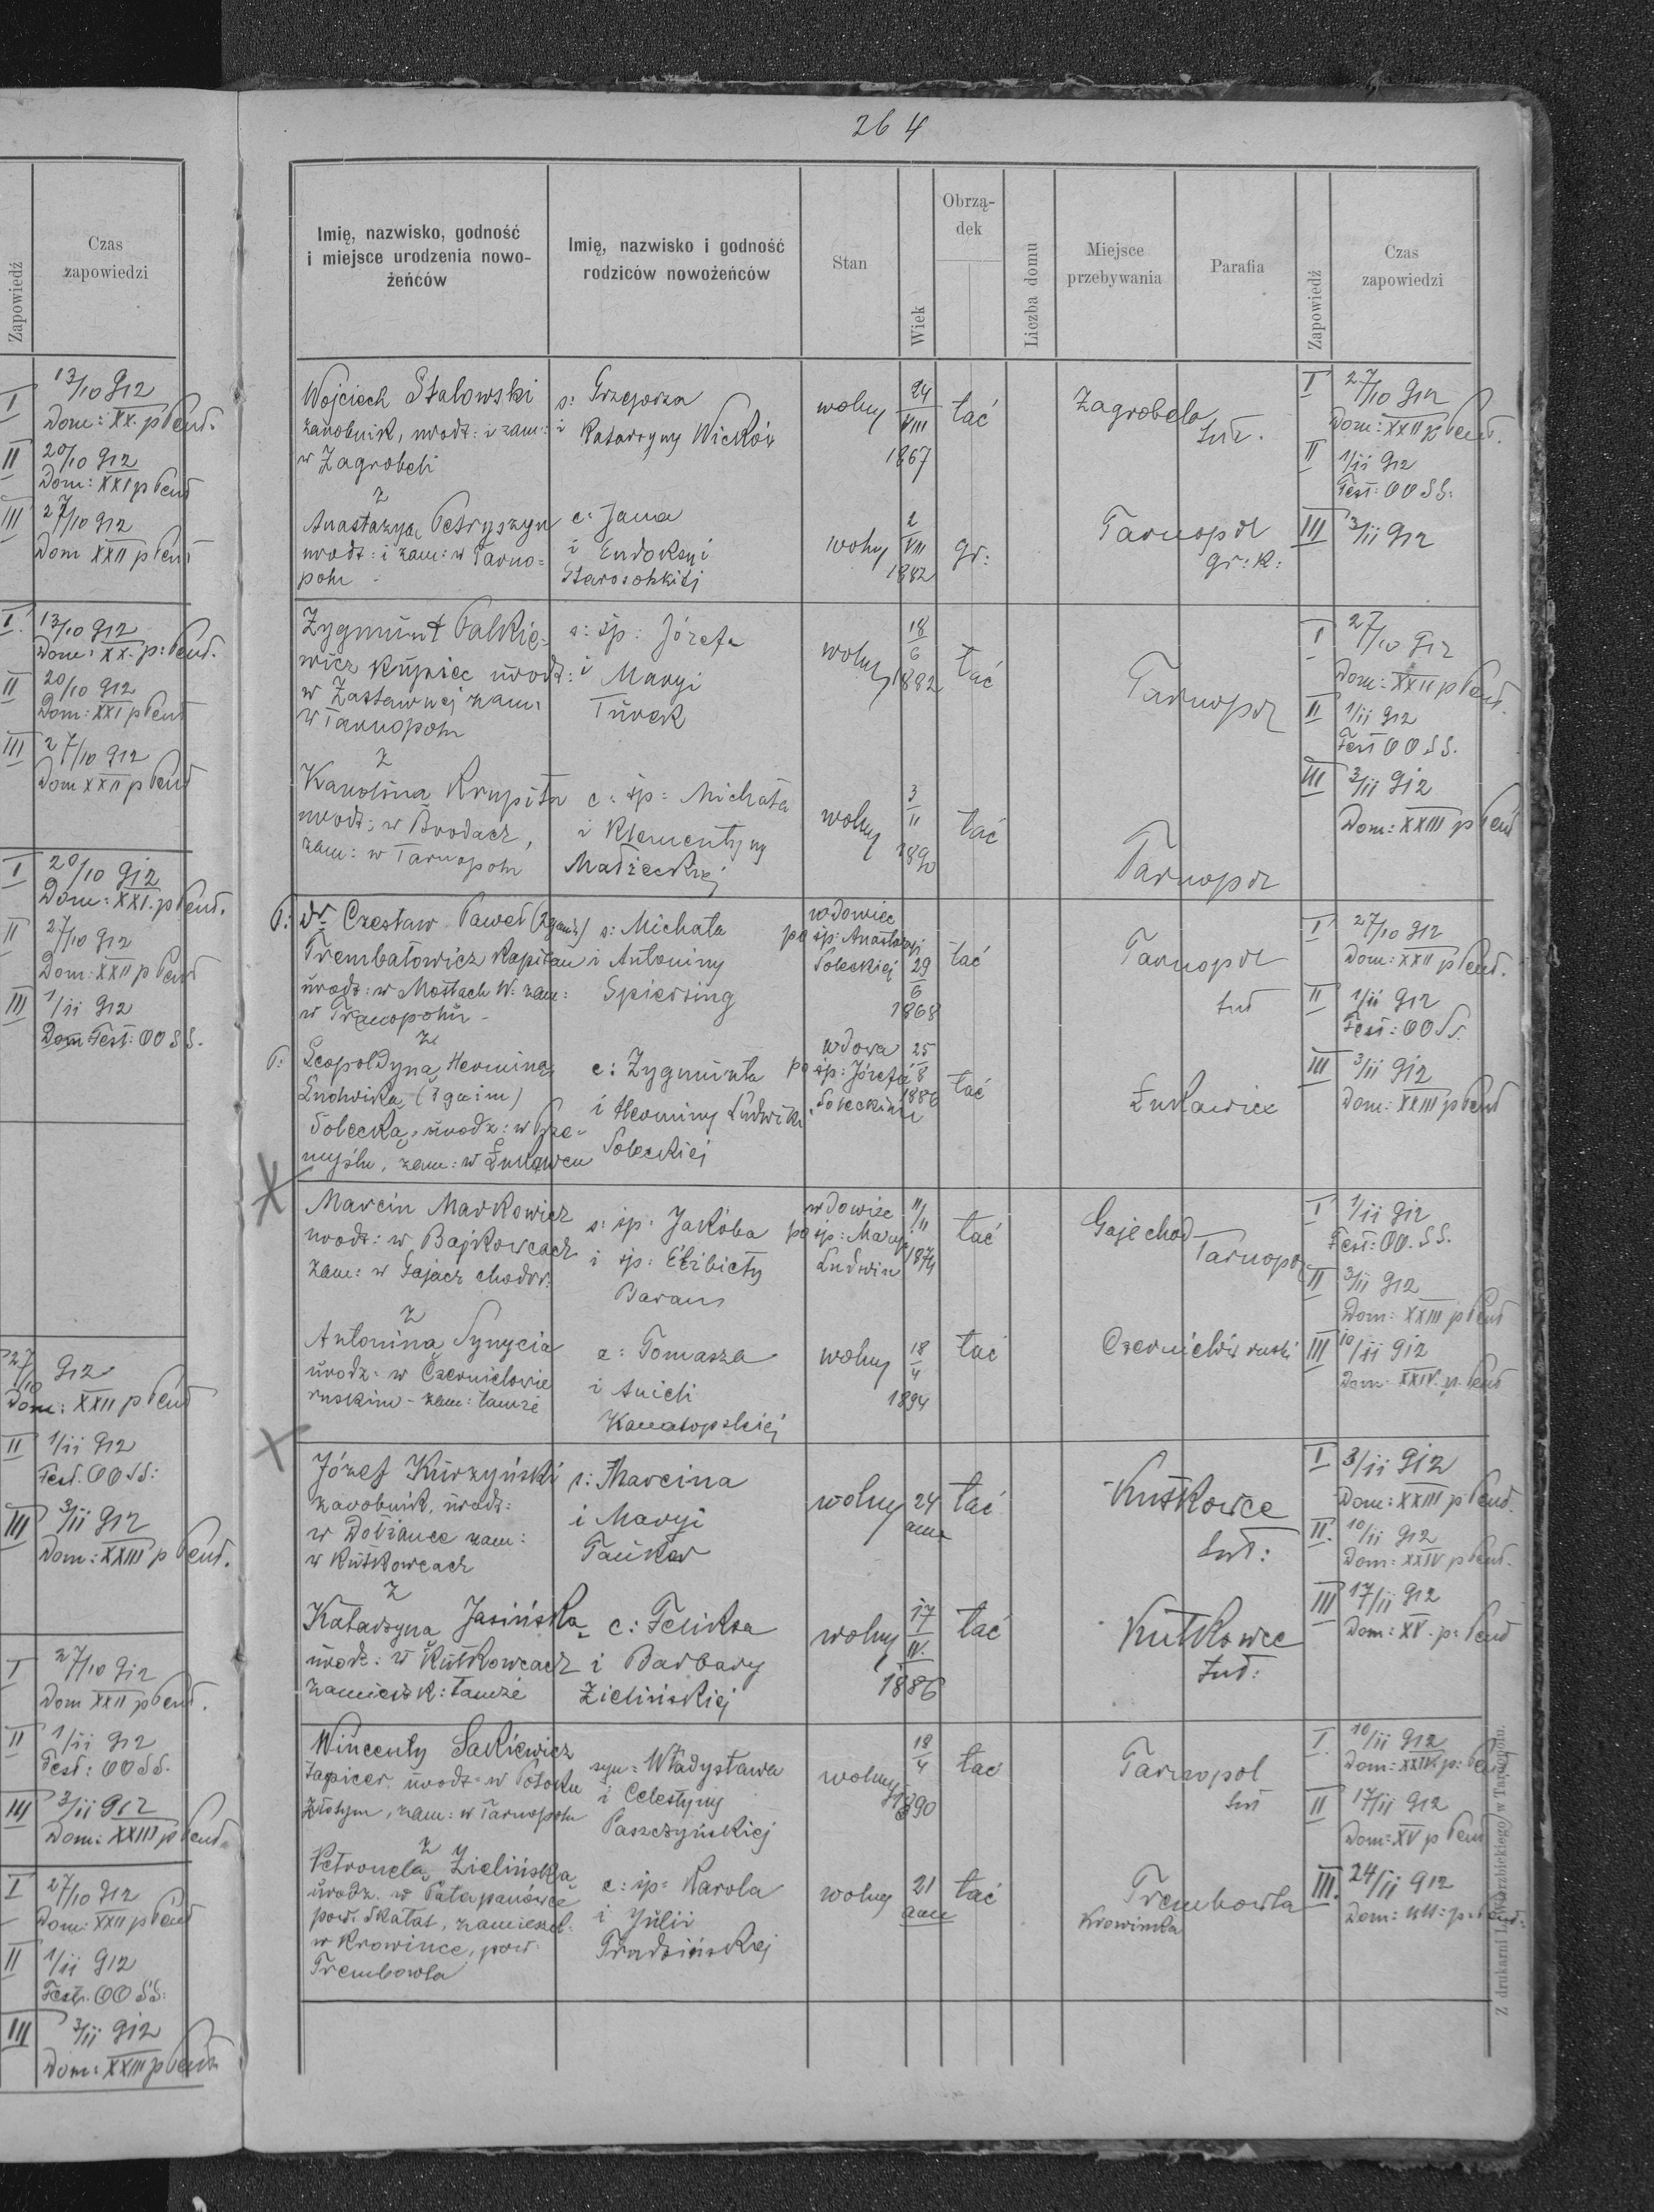 Zapowiedź
Czas
zapowiedzi
I 13/10 912
Dom: XX. p Pent:
II 20/10 912
Dom: XXI p Pent
III 27/10 912
Dom XXII p Pent
I. 13/10 912
Dom: XX. p: Pent.
II 20/10 912
Dom: XXI p Pent
III 27/10 912
Dom XXII p Pent
I 20/10 912
Dom: XXI. p Pent.
II 27/10 912
Dom: XXII p Pent
III 1/11 912
Dom Fest: OO SS.
27/10 912
Dom: XXII p Pent
II 1/11 912
Fest. OO SS:
III 3/11 912
Dom: XXIII p Pent.
I 27/10 912
Dom XXII p Pent.
II 1/11 912
Fest: OO SS.
III 3/11 912
Dom: XXIII p Pent.
I 27/10 912
Dom: XXII p Pent
II 1/11 912
Fest. OO SS:
III 3/11 912
Dom: XXIII p Pent
264
Imię, nazwisko, godność
i miejsce urodzenia nowo-
żeńców
Imię, nazwisko i godność
rodziców nowożeńców
Stan
Wiek
Obrzą-
dek
Liczba domu
Miejsce
przebywania
Parafia
Zapowiedź
Czas
zapowiedzi
Wojciech Stalowski
zarobnik, urodz: i zam:
w Zagrobeli
z
Anastazyą Petryszyn
urodz: i zam: w Tarno=
polu -
s: Grzegorza
i Katarzyny Wicków
c: Jana
i Eudoksyi
wolny
24
VIII
1867
łać
Zagrobela
łać.
wolny
2
VIII
1882
gr:
Tarnopol
gr: k:
I 27/10 912
Dom: XXII p Pent.
II 1/11 912
Fest: OO SS:
III 3/11 912
Zygmunt Palkie-
wicz Kupiec urodz:
w Zastawnej zam:
w Tarnopolu
z
Karoliną Krupita
urodz: w Brodach,
zam: w Tarnopolu
s: śp: Józefa
i Maryi
Turek
c: śp: Michała
i Klementyny
Małżeckiej
wolny
18
6
1892
łać
Tarnopol
wolny
3
11
1890
łać
Tarnopol
I 27/10 912
Dom: XXII p Pent.
II 1/11 912
Fest OO SS.
III 3/11 912
Dom: XXIII p Pent
P: Dr Czesław Paweł (2ga im)
Trembałowicz Kapitan
urodz: w Mostach W: zam:
w Tarnopolu -
z
P: Leopoldyną Herminą
Ludwiką (3ga im)
Solecką, urodz: w Prze-
myślu, zam: w Łukawcu
s: Michała
i Antoniny
Spiersing
c: Zygmunta
i Herminy Ludwiki
Soleckiej
wdowiec
po śp: Anastazyi
Soleckiej
29
6
1868
łać
Tarnopol
łać
wdowa
po śp: Józefie
Soleckim
25
8
1886
łać
Łukawiec
I 27/10 912
Dom: XXII p Pent.
II 1/11 912
Fest: OO SS.
III 3/11 912
Dom: XXIII p Pent
Marcin Markowicz
urodz: w Bajkowcach
zam: w Gajach chodor.
z
Antoniną Synycia
urodz: w Czernielowie
ruskim - zam: tamże
s: śp: Jakóba
i śp: Elżbiety
Baran
c: Tomasza
i Anieli
wdowiec
po śp: Maryi
Ludwin
11/11
1874
łać
Gaje chod
Tarnopol
wolny
18
4
1894
łać
Czernielów ruski
I 1/11 912
Fest: OO. SS.
II 3/11 912
Dom: XXIII p Pent
III 10/11 912
Dom: XXIV. p. Pent
Józef Kurzyński
zarobnik, urodz:
zam:
w Kutkowcach
z
Katarzyna Jasińska
urodz: w Kutkowcach
zamieszk: tamże
s: Marcina
i Maryi
c: Feliksa
i Barbary
Zielińskiej
wolny
24
ann
łać
Kutkowce
łać:
wolny
17
IV.
1886
łać
Kutkowce
łać:
I 3/11 912
Dom: XXIII p Pent.
II. 10/11 912
Dom: XXIV p Pent.
III 17/11 912
Dom: XV. p: Pent
Wincenty Sakiewicz
tapicer, urodz: w Potoku
Złotym, zam: w Tarnopolu
z
Petronelą Zielińską
urodz. w Patapanówce
pow. Skałat, zamieszk:
w Krowince, pow:
Trembowla
syn: Władysława
i Celestyny
Paszczyńskiej
c: śp: Karola
i Julii
Trudzińskiej
wolny
18
4
1890
łać
Tarnopol
łać
wolny
21
ann
łać
Trembowla
Krowinka
I. 10/11 912
Dom: XXIV p: Pent
II 17/11 912
Dom: XV p Pent
III. 24/11 912
Z drukarni L. Wierzbickiego w Tarnopolu.